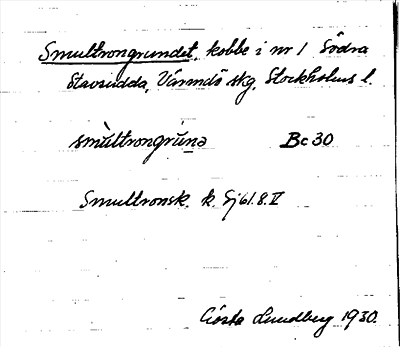 Smultrongrundet, kobbe i nr 1 Södra
Stavsudda, Värmdö skg, Stockholms l.
smùltrongrúnə Bc 30
Smultronsk. k. Sj 61.8.V
Gösta Lundberg 1930.